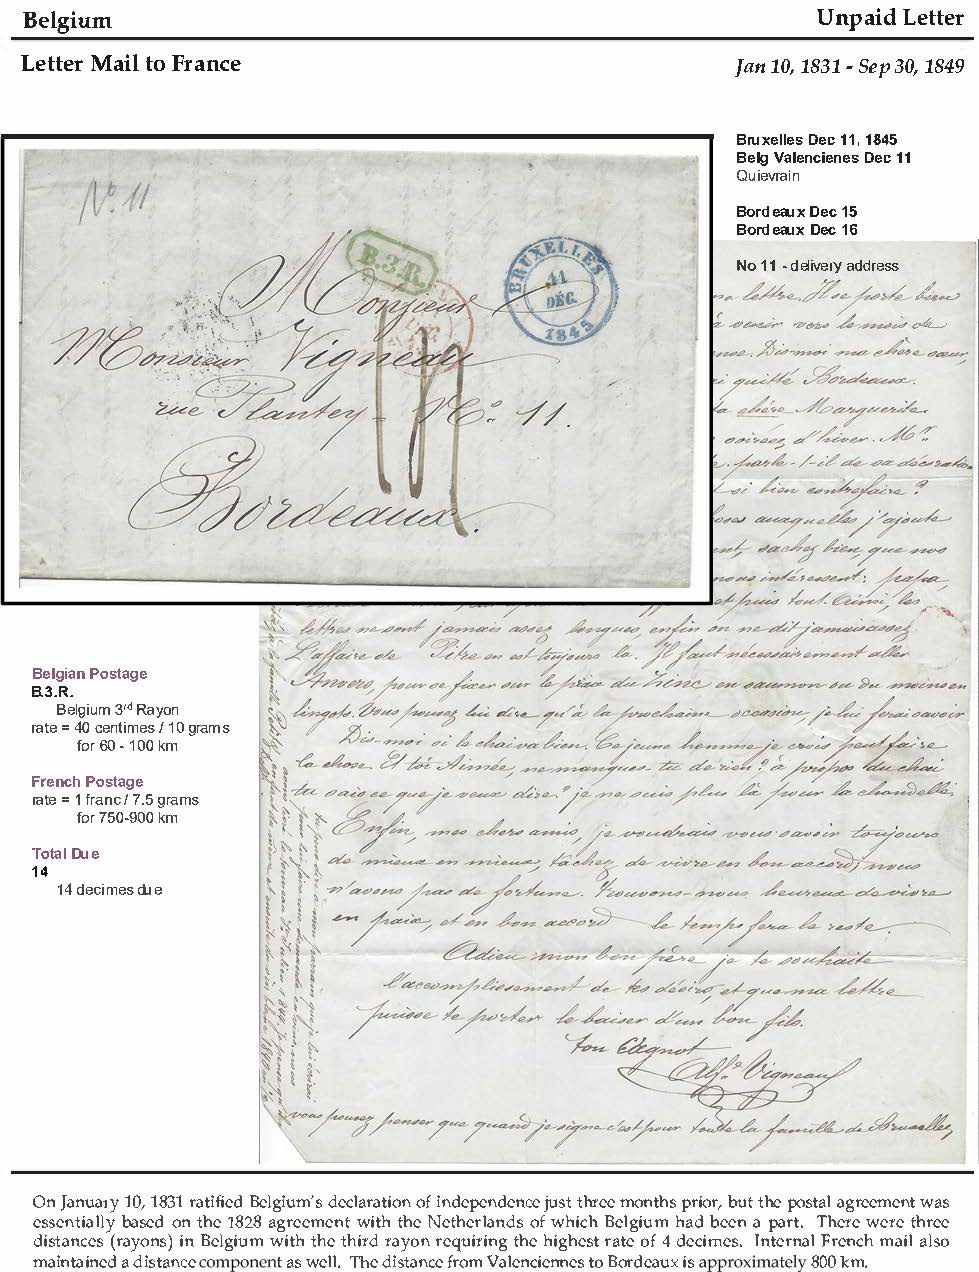 Belgium
Unpaid Letter
Letter Mail to France
Jan 10, 1831 - Sep 30, 1849
Bruxelles Dec 11, 1845
Belg Valencienes Dec 11
Quievrain
Bordeaux Dec 15
Bordeaux Dec 16
No 11 - delivery address
No 11
B.3.R.
BRUXELLES
11
DÉC.
1845
Monsieur
Monsieur Vigneau
rue Plantey - No. 11.
Bordeaux.
14
ma lettre. Il se porte bien
à venir vers le mois de
Dis-moi ma chère sœur,
quitté Bordeaux.
chère Marguerite
soirées d'hiver. Mr.
parle-t-il de sa décoration
si bien contrefaire?
auxquelles j'ajoute
sachez bien, que nos
nous intéressent: papa,
et puis tout. Ainsi, les
lettres ne sont jamais assez longues, enfin on ne dit jamais assez
L'affaire de Pitre en est toujours là. Il faut nécessairement aller
Anvers, pour se fixer sur le prix du zinc en saumon ou du moins en
lingots. Vous pouvez lui dire qu'à la prochaine occasion, je lui ferai savoir
Dis-moi si le chai va bien. Ce jeune homme je crois peut faire
la chose. Et toi Aimée, ne manques-tu de rien? à propos du chai
tu sais ce que je veux dire? je ne suis plus là pour la chandelle.
Enfin, mes chers amis, je voudrais vous savoir toujours
de mieux en mieux, tâchez de vivre en bon accord; nous
n'avons pas de fortune. Trouvons-nous heureux de vivre
en paix, et en bon accord le temps fera le reste.
Adieu mon bon père je te souhaite
l'accomplissement de tes désirs, et que ma lettre
puisse te porter le baiser d'un bon fils.
ton
Alf.de Vigneau
vous pouvez penser que quand je signe c'est pour toute la famille de Bruxelles,
Belgian Postage
B.3.R.
Belgium 3rd Rayon
rate = 40 centimes / 10 grams
for 60 - 100 km
French Postage
rate = 1 franc / 7.5 grams
for 750-900 km
Total Due
14
14 decimes due
On January 10, 1831 ratified Belgium's declaration of independence just three months prior, but the postal agreement was
essentially based on the 1828 agreement with the Netherlands of which Belgium had been a part. There were three
distances (rayons) in Belgium with the third rayon requiring the highest rate of 4 decimes. Internal French mail also
maintained a distance component as well. The distance from Valenciennes to Bordeaux is approximately 800 km.